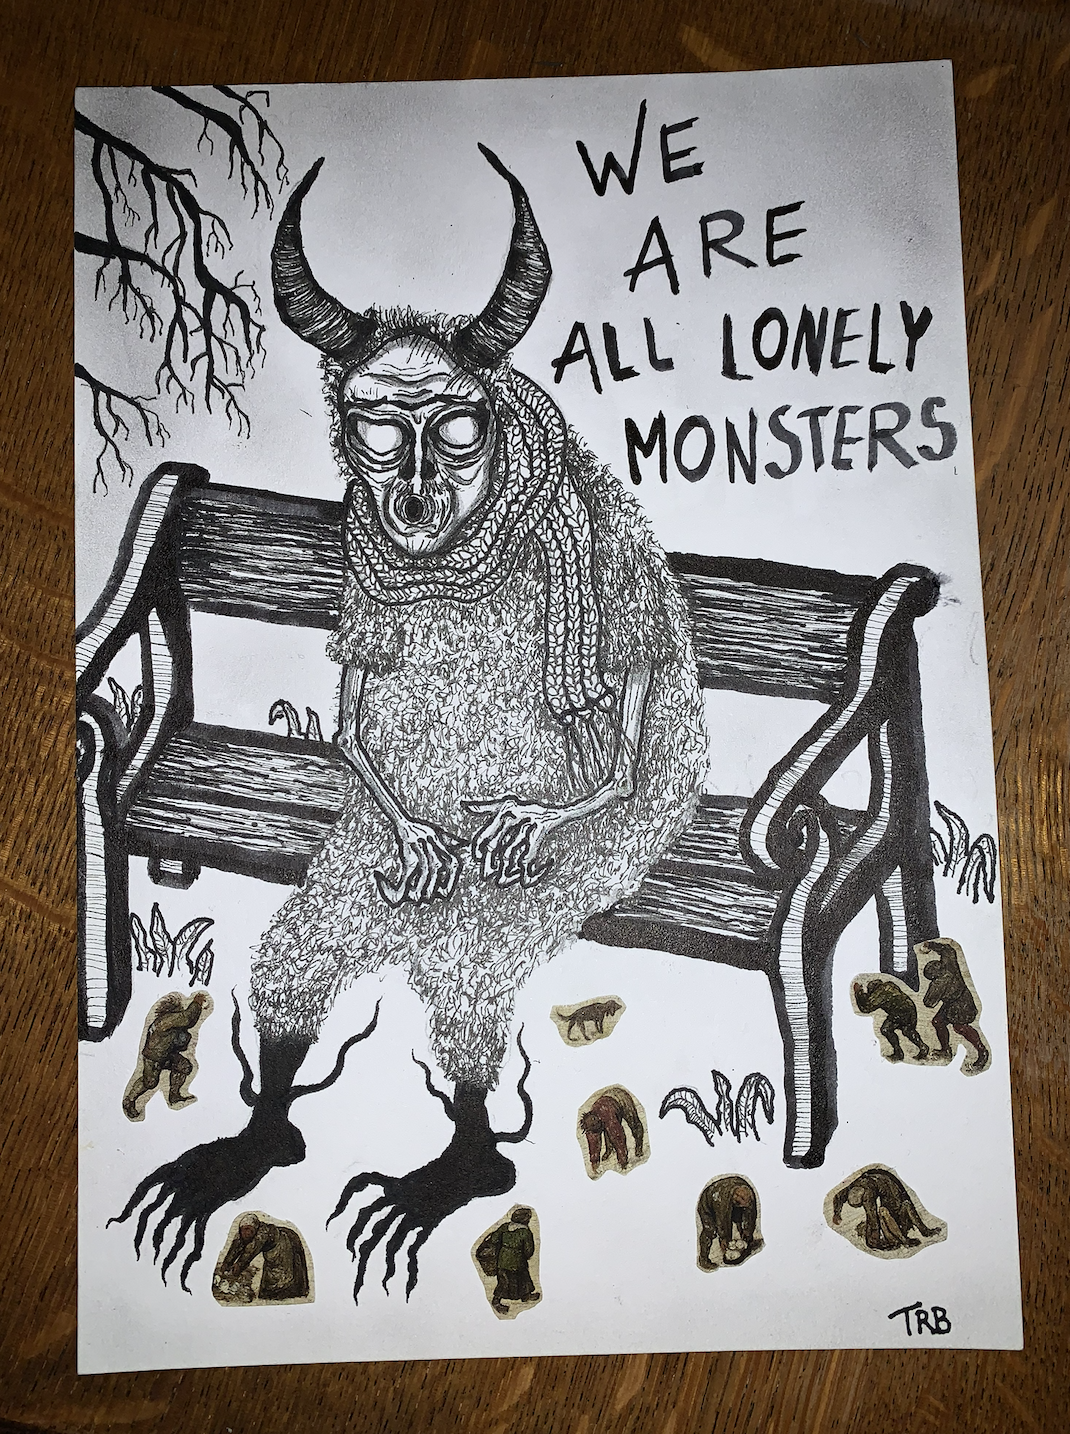 WE
ARE
ALL LONELY
MONSTERS
TRB